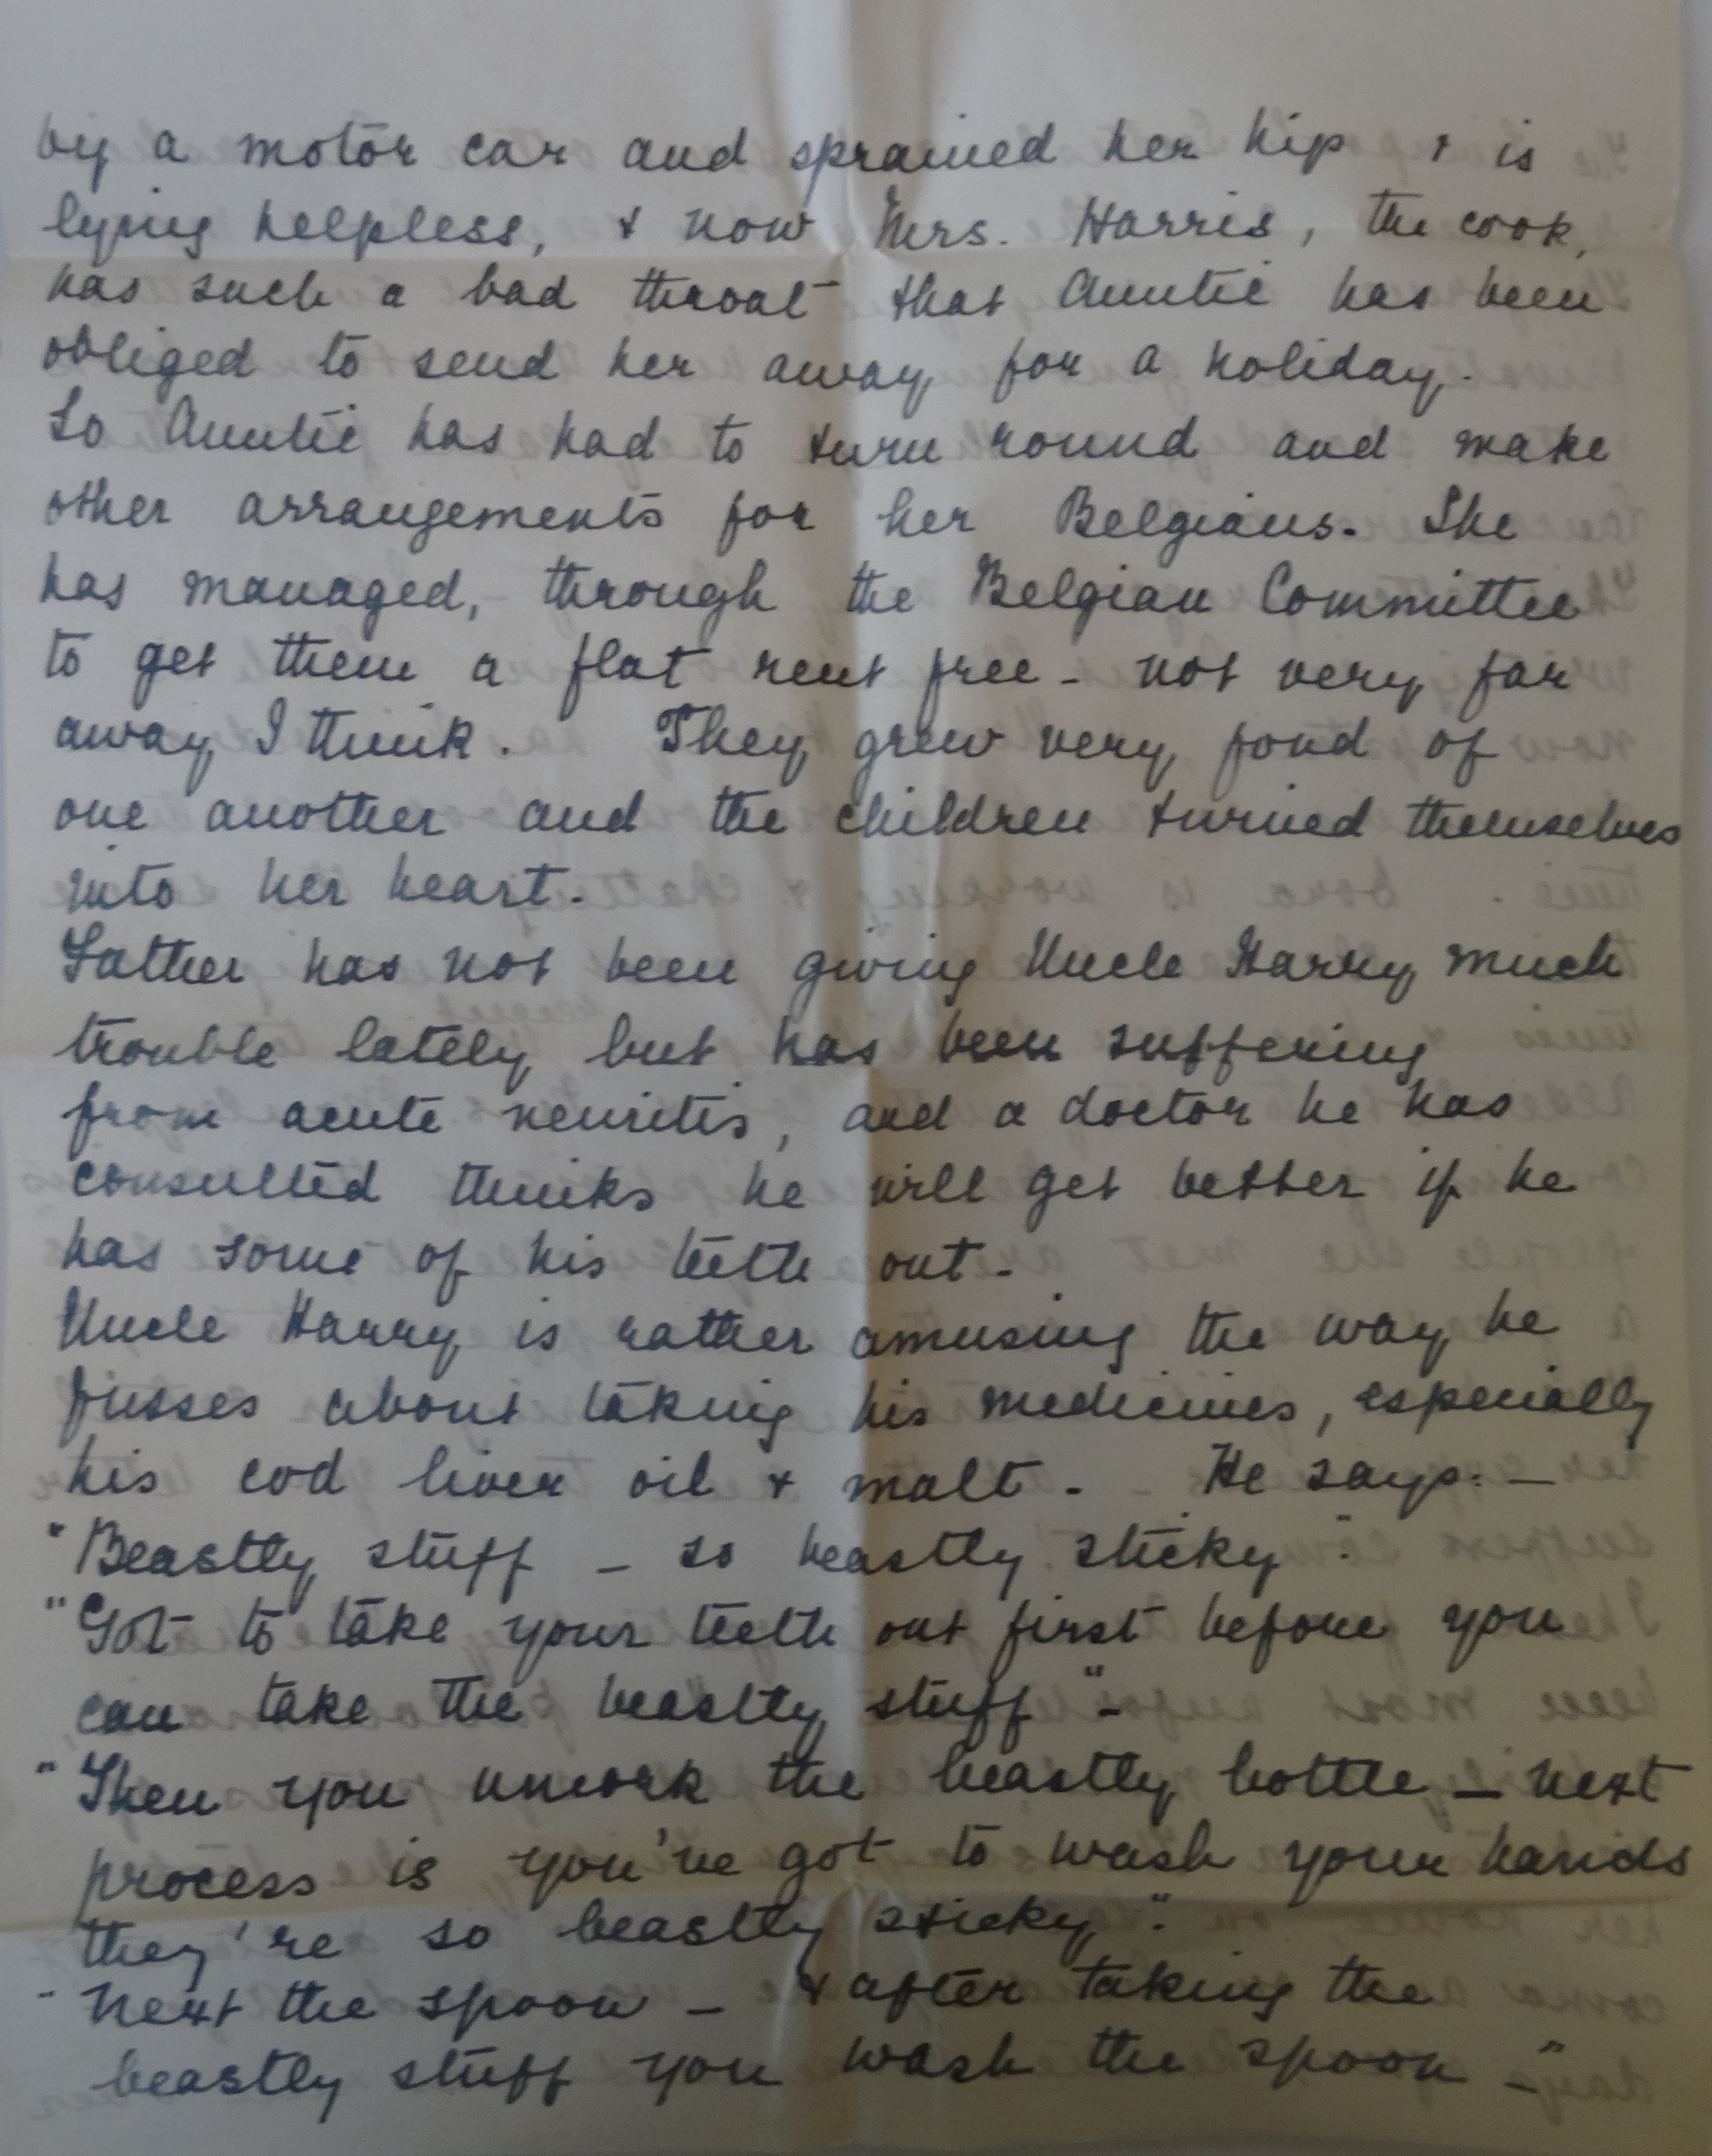 by a motor car and sprained her hip & is
lying helpless, & now Mrs. Harris, the cook,
has such a bad throat that Auntie has been
obliged to send her away for a holiday.
So Auntie has had to turn round and make
other arrangements for her Belgians. She
has managed, through the Belgian Committee
to get them a flat rent free - not very far
away I think. They grew very fond of
one another and the children turned themselves
into her heart.
Father has not been giving Uncle Harry much
trouble lately but has been suffering
from acute neuritis, and a doctor he has
consulted thinks he will get better if he
has some of his teeth out.
Uncle Harry is rather amusing the way he
fusses about taking his medicines, especially
his cod liver oil & malt. He says: —
"Beastly stuff - so beastly sticky".
"Got to take your teeth out first before you
can take the beastly stuff".
"Then you uncork the beastly bottle — next
process is you've got to wash your hands
they're so beastly sticky".
"Next the spoon - & after taking the
beastly stuff you wash the spoon -"